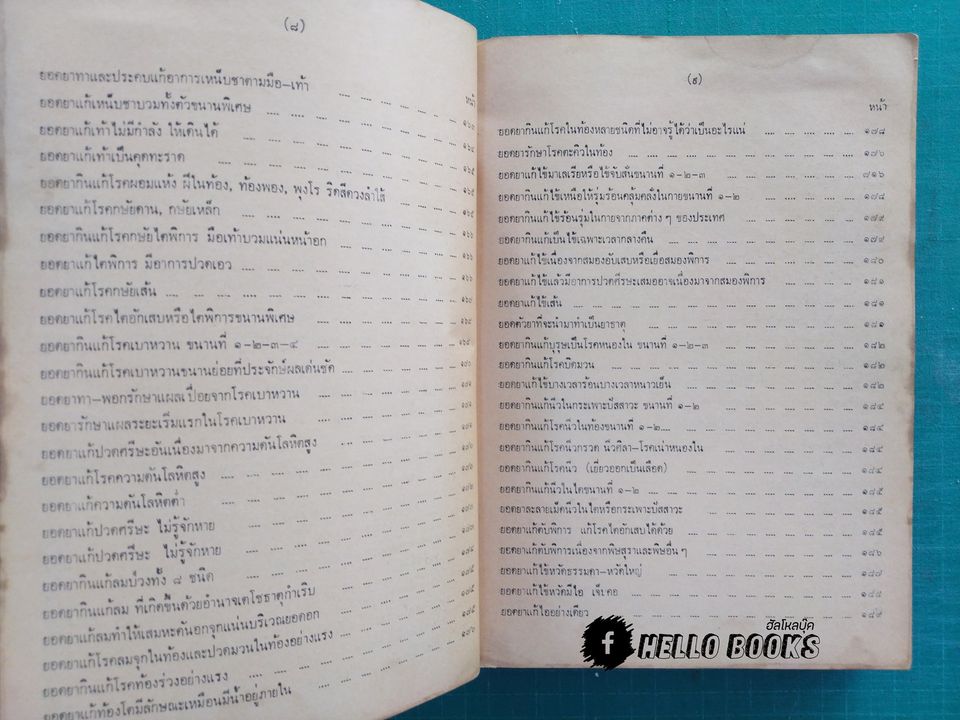 (๘)
หน้า
ยอดยาทาและประคบแก้อาการเหน็บชาตามมือ–เท้า
ยอดยาแก้เหน็บชาบวมทั้งตัวขนานพิเศษ .... ๑๖๓
ยอดยาแก้เท้าไม่มีกำลัง ให้เดินได้ .... ๑๖๔
ยอดยาแก้เท้าเป็นคุดทะราด .... ๑๖๕
ยอดยากินแก้โรคผอมแห้ง ผีในท้อง, ท้องพอง, พุงโร ริดสีดวงลำไส้ .... ๑๖๕
ยอดยาแก้โรคกษัยดาน, กษัยเหล็ก .... ๑๖๕
ยอดยากินแก้โรคกษัยไตพิการ มือเท้าบวมแน่นหน้าอก .... ๑๖๖
ยอดยาแก้ไตพิการ มีอาการปวดเอว .... ๑๖๖
ยอดยาแก้โรคกษัยเส้น .... ๑๖๘
ยอดยาแก้โรคไตอักเสบหรือไตพิการขนานพิเศษ
ยอดยากินแก้โรคเบาหวาน ขนานที่ ๑–๒–๓–๔
ยอดยากินแก้โรคเบาหวานขนานย่อยที่ประจักษ์ผลเด่นชัด
ยอดยาทา–พอกรักษาแผลเปื่อยจากโรคเบาหวาน
ยอดยารักษาแผลระยะเริ่มแรกในโรคเบาหวาน
ยอดยาแก้ปวดศรีษะอันเนื่องมาจากความดันโลหิตสูง
ยอดยาแก้โรคความดันโลหิตสูง
ยอดยาแก้ความดันโลหิตต่ำ
ยอดยาแก้ปวดศรีษะ ไม่รู้จักหาย
ยอดยาแก้ปวดศรีษะ ไม่รู้จักหาย
ยอดยากินแก้ลมบ้วงทั้ง ๘ ชนิด
ยอดยากินแก้ลม ที่เกิดขึ้นด้วยอำนาจเตโชธาตุกำเริบ
ยอดยาแก้ลมทำให้เสมหะดันอกจุกแน่นบริเวณยอดอก
ยอดยาแก้โรคลมจุกในท้องและปวดมวนในท้องอย่างแรง
ยอดยากินแก้โรคท้องร่วงอย่างแรง
ยอดยาแก้ท้องโตมีลักษณะเหมือนมีน้ำอยู่ภายใน
(๙)
หน้า
ยอดยากินแก้โรคในท้องหลายชนิดที่ไม่อาจรู้ได้ว่าเป็นอะไรแน่ .... ๑๗๘
ยอดยารักษาโรคตะคิวในท้อง .... ๑๗๖
ยอดยาแก้ไข้มาเลเรียหรือไข้จับสั่นขนานที่ ๑–๒–๓ .... ๘๑๖
ยอดยากินแก้ไข้เหนือให้รุ่มร้อนคลุ้มคลั่งในกายขนานที่ ๑–๒ .... ๑๗๘
ยอดยากินแก้ไข้ร้อนรุ่มในกายจากภาคต่าง ๆ ของประเทศ .... ๑๗๙
ยอดยากินแก้เป็นไข้เฉพาะเวลากลางคืน .... ๑๗๙
ยอดยาแก้ไข้เนื่องจากสมองอับเสบหรือเยื่อสมองพิการ .... ๑๘๐
ยอดยาแก้ไข้แล้วมีอาการปวดศรีษะเสมออาจเนื่องมาจากสมองพิการ .... ๑๘๑
ยอดยาแก้ไข้เส้น .... ๑๘๑
ยอดตัวยาที่จะนำมาทำเป็นยาธาตุ .... ๑๘๑
ยอดยากินแก้บุรุษเป็นโรคหนองใน ขนานที่ ๑–๒–๓ .... ๑๘๒
ยอดยากินแก้โรคบิดมวน .... ๑๘๒
ยอดยาแก้ไข้บางเวลาร้อนบางเวลาหนาวเย็น .... ๑๘๒
ยอดยากินแก้นิ่วในกระเพาะปัสสาวะ ขนานที่ ๑–๒ .... ๑๘๔
ยอดยากินแก้โรคนิ่วในท้องขนานที่ ๑–๒ .... ๑๘๔
ยอดยากินแก้โรคนิ่วกรวด นิ่วศิลา–โรคเน่าหนองใน .... ๑๘๔
ยอดยากินแก้โรคนิ่ว (เยี่ยวออกเป็นเลือด) .... ๑๘๔
ยอดยากินแก้นิ่วในไตขนานที่ ๑–๒ .... ๑๘๕
ยอดยาละลายเม็ดนิ่วในไตหรือกระเพาะปัสสาวะ .... ๑๘๕
ยอดยาแก้ตับพิการ แก้โรคไตอักเสบได้ด้วย .... ๑๘๕
ยอดยาแก้ตับพิการเนื่องจากพิษสุราและพิษอื่น ๆ .... ๑๘๖
ยอดยาแก้ไข้หวัดธรรมดา–หวัดใหญ่ .... ๑๘๗
ยอดยาแก้ไข้หวัดมีไอ เจ็บคอ
ยอดยาแก้ไออย่างเดียว
ฮัลโหลบุ๊ค
f HELLO BOOKS